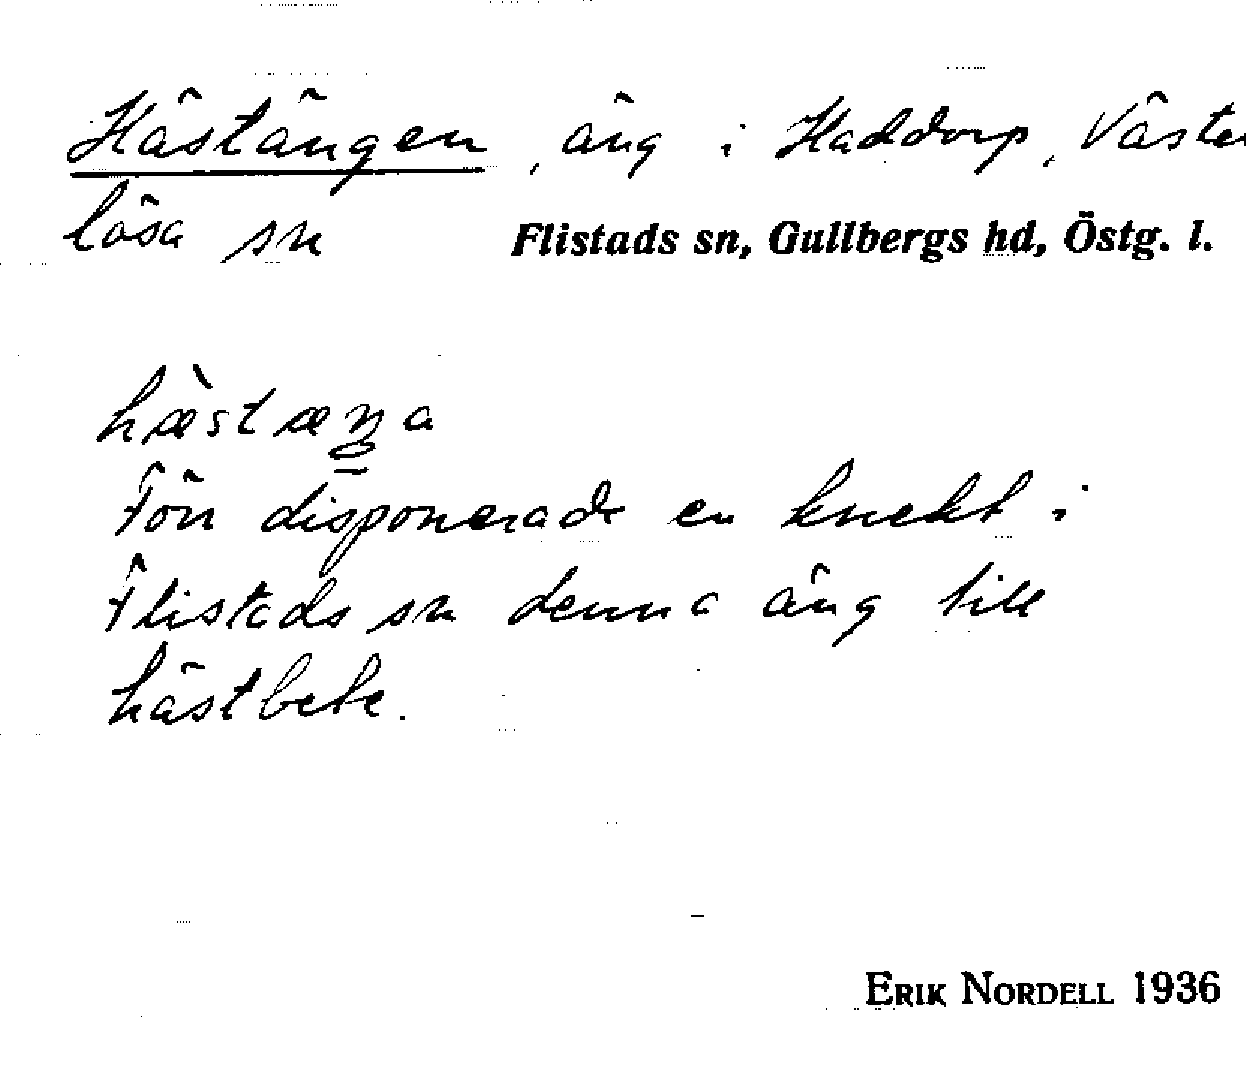 Hästängen, äng i Haddorp, Väster
lösa sn Flistads sn, Gullbergs hd, Östg. l.
hæ̀stæŋa
Förr disponerade en knekt i
Flistads sn denna äng till
hästbete.
ERIK NORDELL 1936